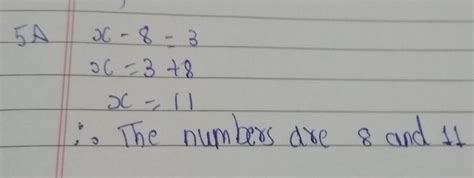 5A x - 8 = 3
x = 3 + 8
x = 11
∴ The numbers are 8 and 11